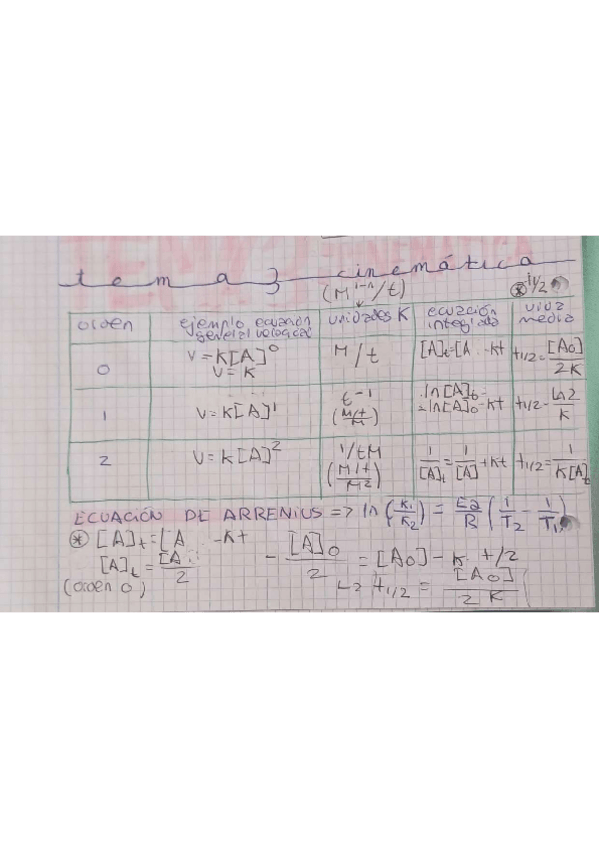 tema 3 cinemática
(M¹⁻ⁿ/t)
⊛ t1/2
orden ejemplo ecuación unidades K ecuación integrada vida media
0 V=K[A]⁰ V=K M/t [A]t=[A -Kt t1/2=[A0]/2K
1 V=K[A]¹ t⁻¹ (M/t/M) ln[A]t= =ln[A]0-Kt t1/2=Ln2/K
2 V=K[A]² 1/tM (M/t/M²) 1/[A]t=1/[A]+Kt t1/2=1/K[A]
ECUACIÓN DE ARRENIUS => ln(K1/K2)=Ea/R(1/T2-1/T1)
⊛ [A]t=[A -Kt
[A]t=[A/2 - [A]0/2=[A0]-K·t/2
(orden 0) t1/2=[A0]/2K